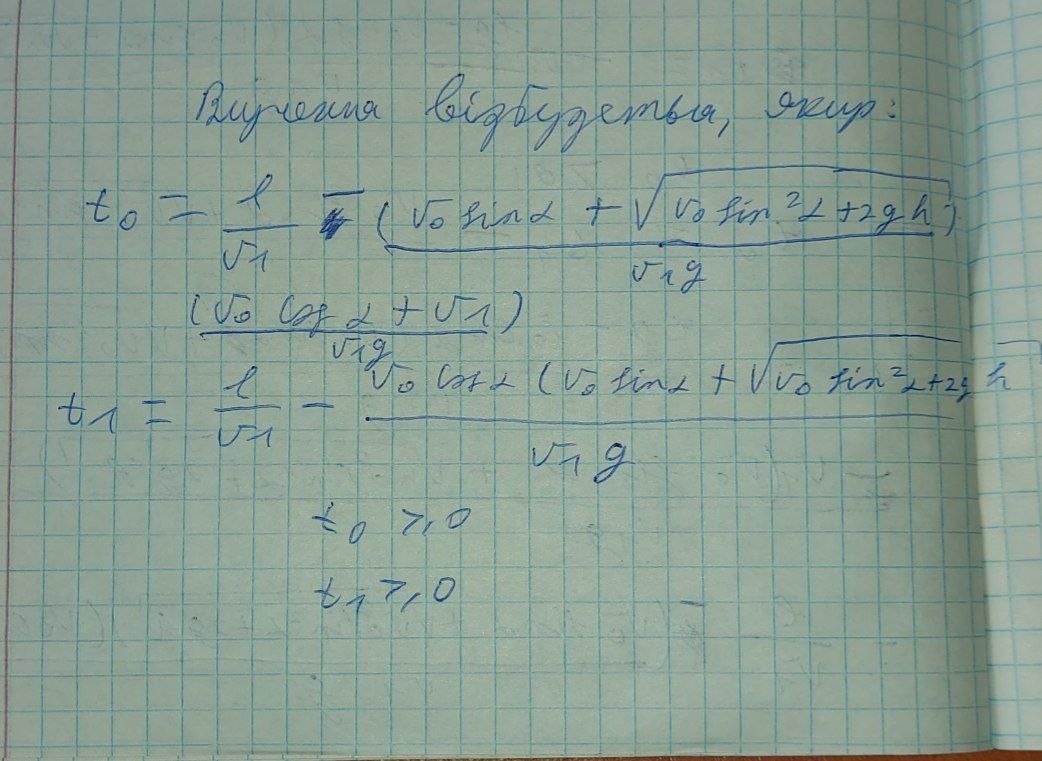 Влучення відбудеться, якщо:
t₀ = l/v₁ - (v₀ sin α + √(v₀ sin² α + 2gh))/(v₁g)
(v₀ cos α + v₁)/(v₁g)
t₁ = l/v₁ - v₀ cos α (v₀ sin α + √(v₀ sin² α + 2gh)/(v₁g)
t₀ ⩾ 0
t₁ ⩾ 0